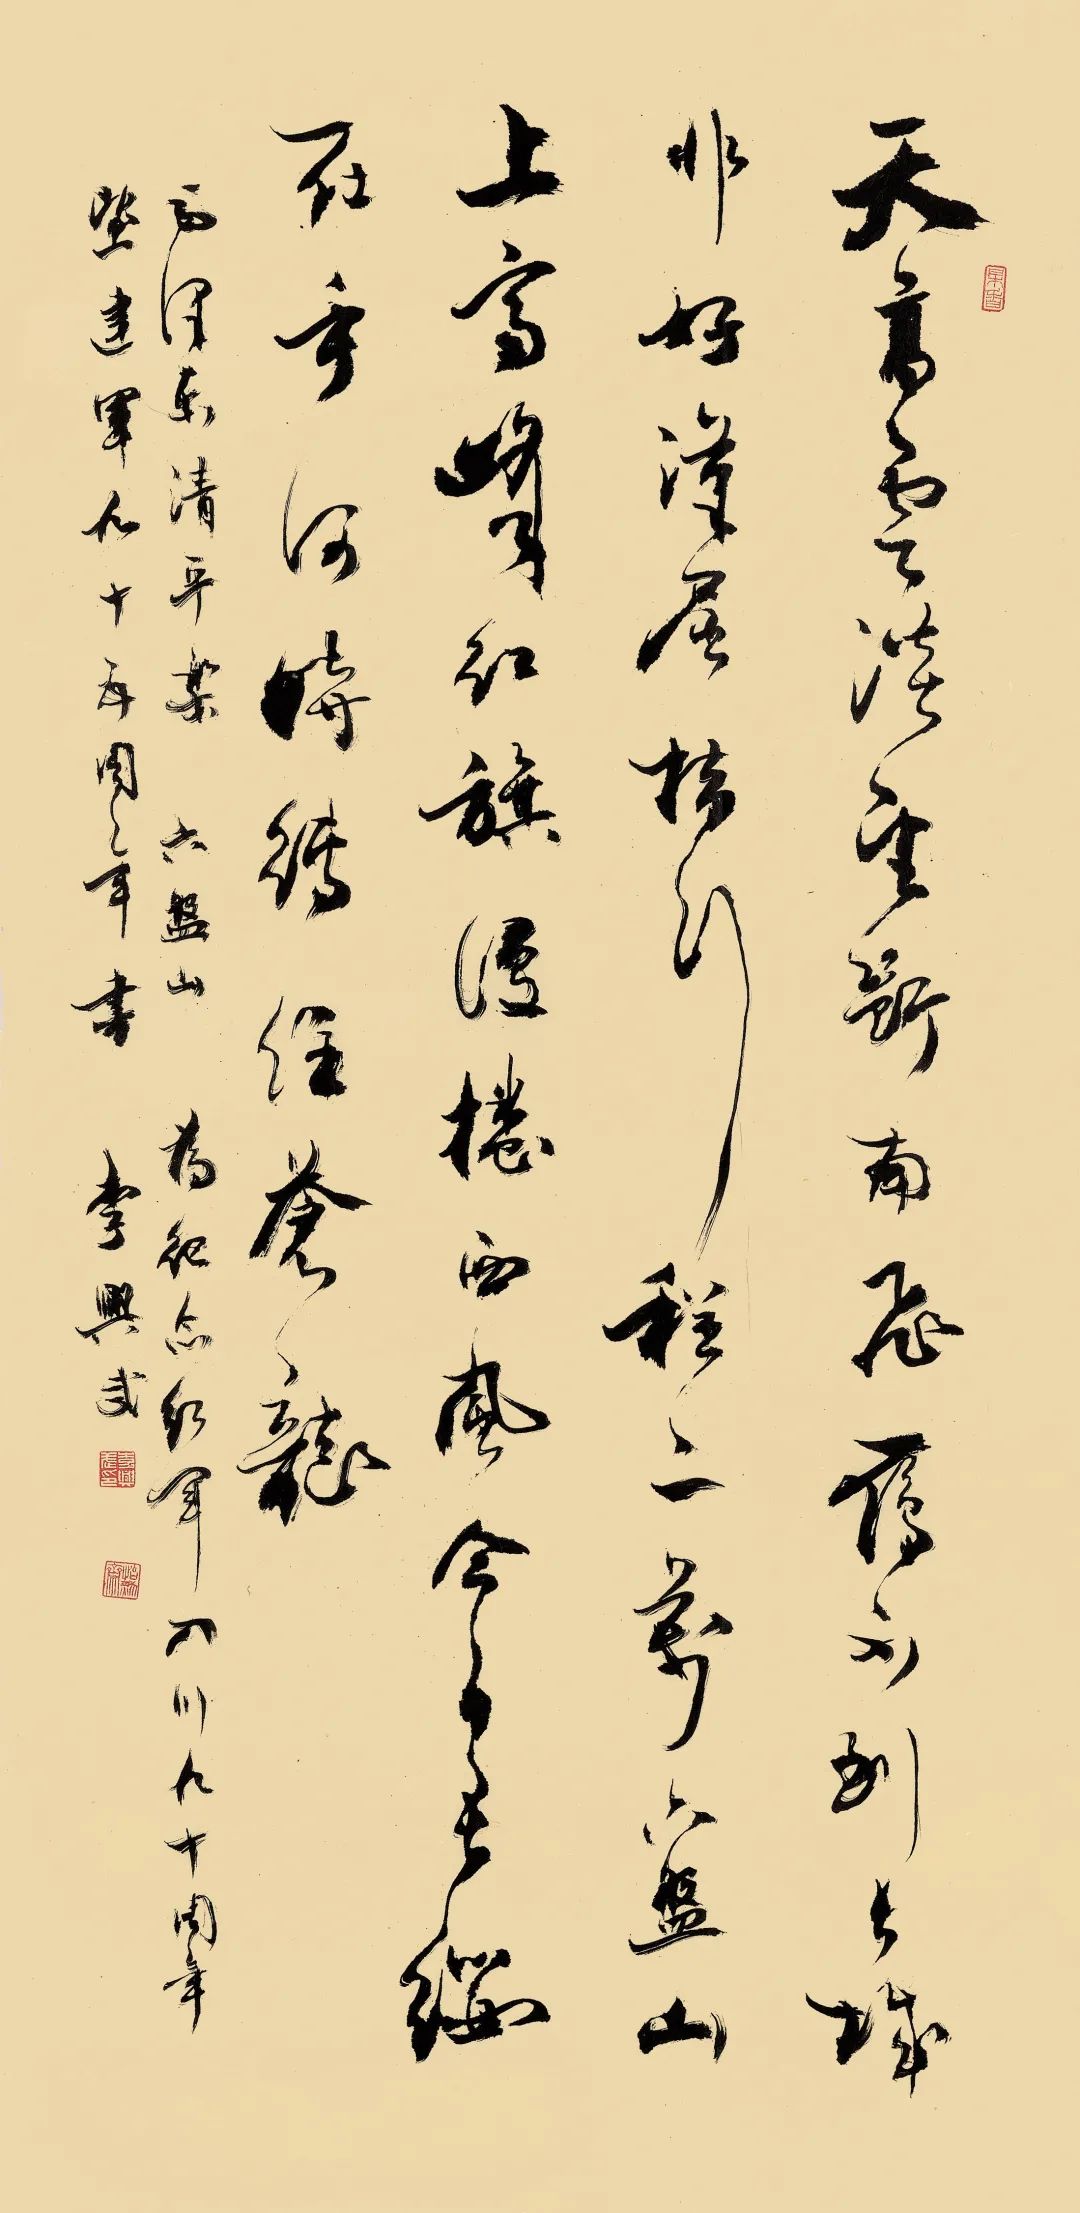 天高雲淡望斷南飛雁不到長城
非好漢屈指行程二萬六盤山
上高峰紅旗漫捲西風今日長纓
在手何時縛住蒼龍
毛澤東清平樂 六盤山 為紀念紅軍入川九十周年
暨建軍九十五周年書 李興